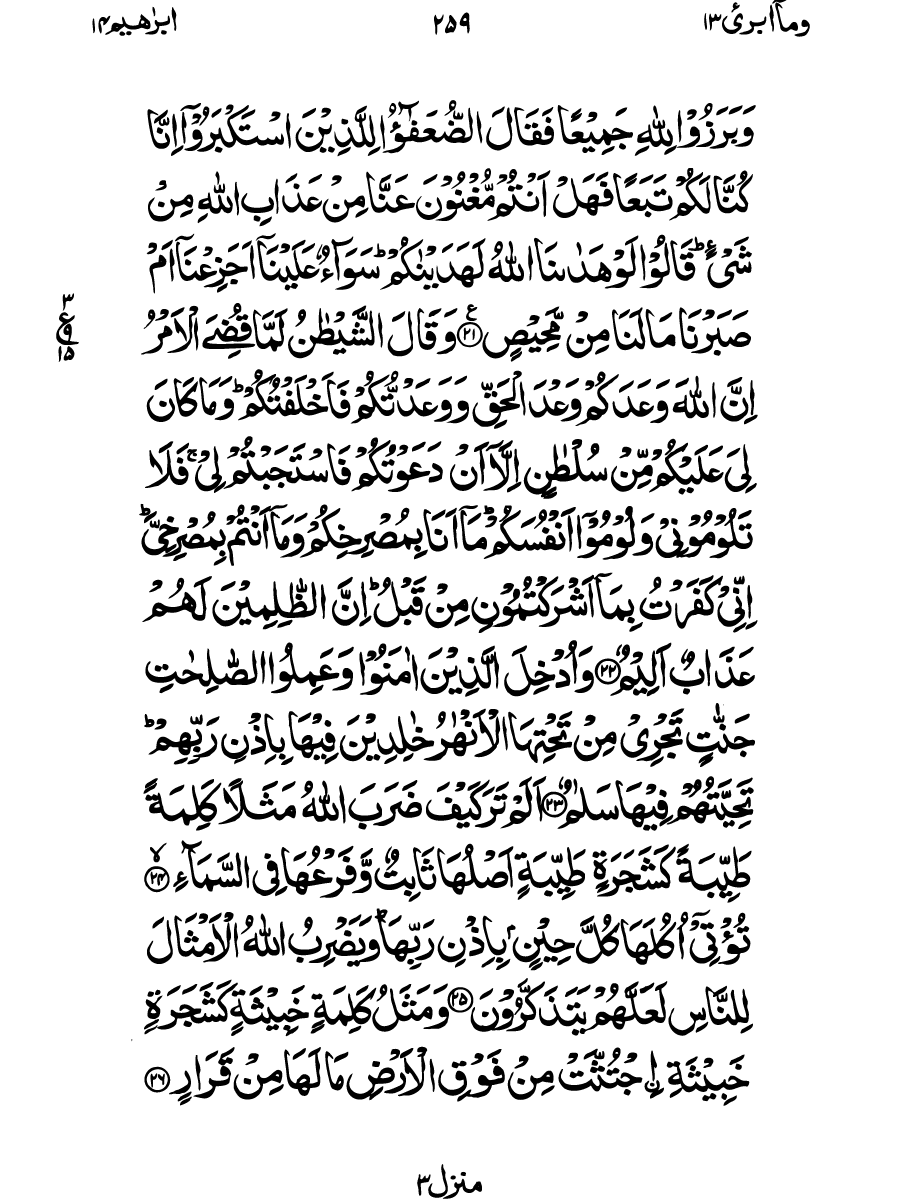 وماۤ ابرئ ١٣ ٢٥٩ ابرٰهيم ١٤
وَبَرَزُوْا لِلّٰهِ جَمِيْعًا فَقَالَ الضُّعَفٰٓؤُا لِلَّذِيْنَ اسْتَكْبَرُوْۤا اِنَّا
كُنَّا لَكُمْ تَبَعًا فَهَلْ اَنْتُمْ مُّغْنُوْنَ عَنَّا مِنْ عَذَابِ اللّٰهِ مِنْ
شَیْءٍ ؕ قَالُوْا لَوْ هَدٰىنَا اللّٰهُ لَهَدَيْنٰكُمْ ؕ سَوَآءٌ عَلَيْنَاۤ اَجَزِعْنَاۤ اَمْ
صَبَرْنَا مَا لَنَا مِنْ مَّحِيْصٍ ﴿٢١﴾ ع وَقَالَ الشَّيْطٰنُ لَمَّا قُضِیَ الْاَمْرُ
٣
ع ٩
١٥
اِنَّ اللّٰهَ وَعَدَكُمْ وَعْدَ الْحَقِّ وَوَعَدْتُّكُمْ فَاَخْلَفْتُكُمْ ؕ وَمَا كَانَ
لِیَ عَلَيْكُمْ مِّنْ سُلْطٰنٍ اِلَّاۤ اَنْ دَعَوْتُكُمْ فَاسْتَجَبْتُمْ لِیْ ۚ فَلَا
تَلُوْمُوْنِیْ وَلُوْمُوْۤا اَنْفُسَكُمْ ؕ مَاۤ اَنَا بِمُصْرِخِكُمْ وَمَاۤ اَنْتُمْ بِمُصْرِخِیَّ ؕ
اِنِّیْ كَفَرْتُ بِمَاۤ اَشْرَكْتُمُوْنِ مِنْ قَبْلُ ؕ اِنَّ الظّٰلِمِيْنَ لَهُمْ
عَذَابٌ اَلِيْمٌ ﴿٢٢﴾ وَاُدْخِلَ الَّذِيْنَ اٰمَنُوْا وَعَمِلُوا الصّٰلِحٰتِ
جَنّٰتٍ تَجْرِیْ مِنْ تَحْتِهَا الْاَنْهٰرُ خٰلِدِيْنَ فِيْهَا بِاِذْنِ رَبِّهِمْ ؕ
تَحِيَّتُهُمْ فِيْهَا سَلٰمٌ ﴿٢٣﴾ اَلَمْ تَرَ كَيْفَ ضَرَبَ اللّٰهُ مَثَلًا كَلِمَةً
طَيِّبَةً كَشَجَرَةٍ طَيِّبَةٍ اَصْلُهَا ثَابِتٌ وَّفَرْعُهَا فِی السَّمَآءِ ﴿٢٤﴾ ۙ
تُؤْتِیْۤ اُكُلَهَا كُلَّ حِيْنٍۭ بِاِذْنِ رَبِّهَا ؕ وَيَضْرِبُ اللّٰهُ الْاَمْثَالَ
لِلنَّاسِ لَعَلَّهُمْ يَتَذَكَّرُوْنَ ﴿٢٥﴾ وَمَثَلُ كَلِمَةٍ خَبِيْثَةٍ كَشَجَرَةٍ
خَبِيْثَةِ ِۨاجْتُثَّتْ مِنْ فَوْقِ الْاَرْضِ مَا لَهَا مِنْ قَرَارٍ ﴿٢٦﴾
منزل ٣